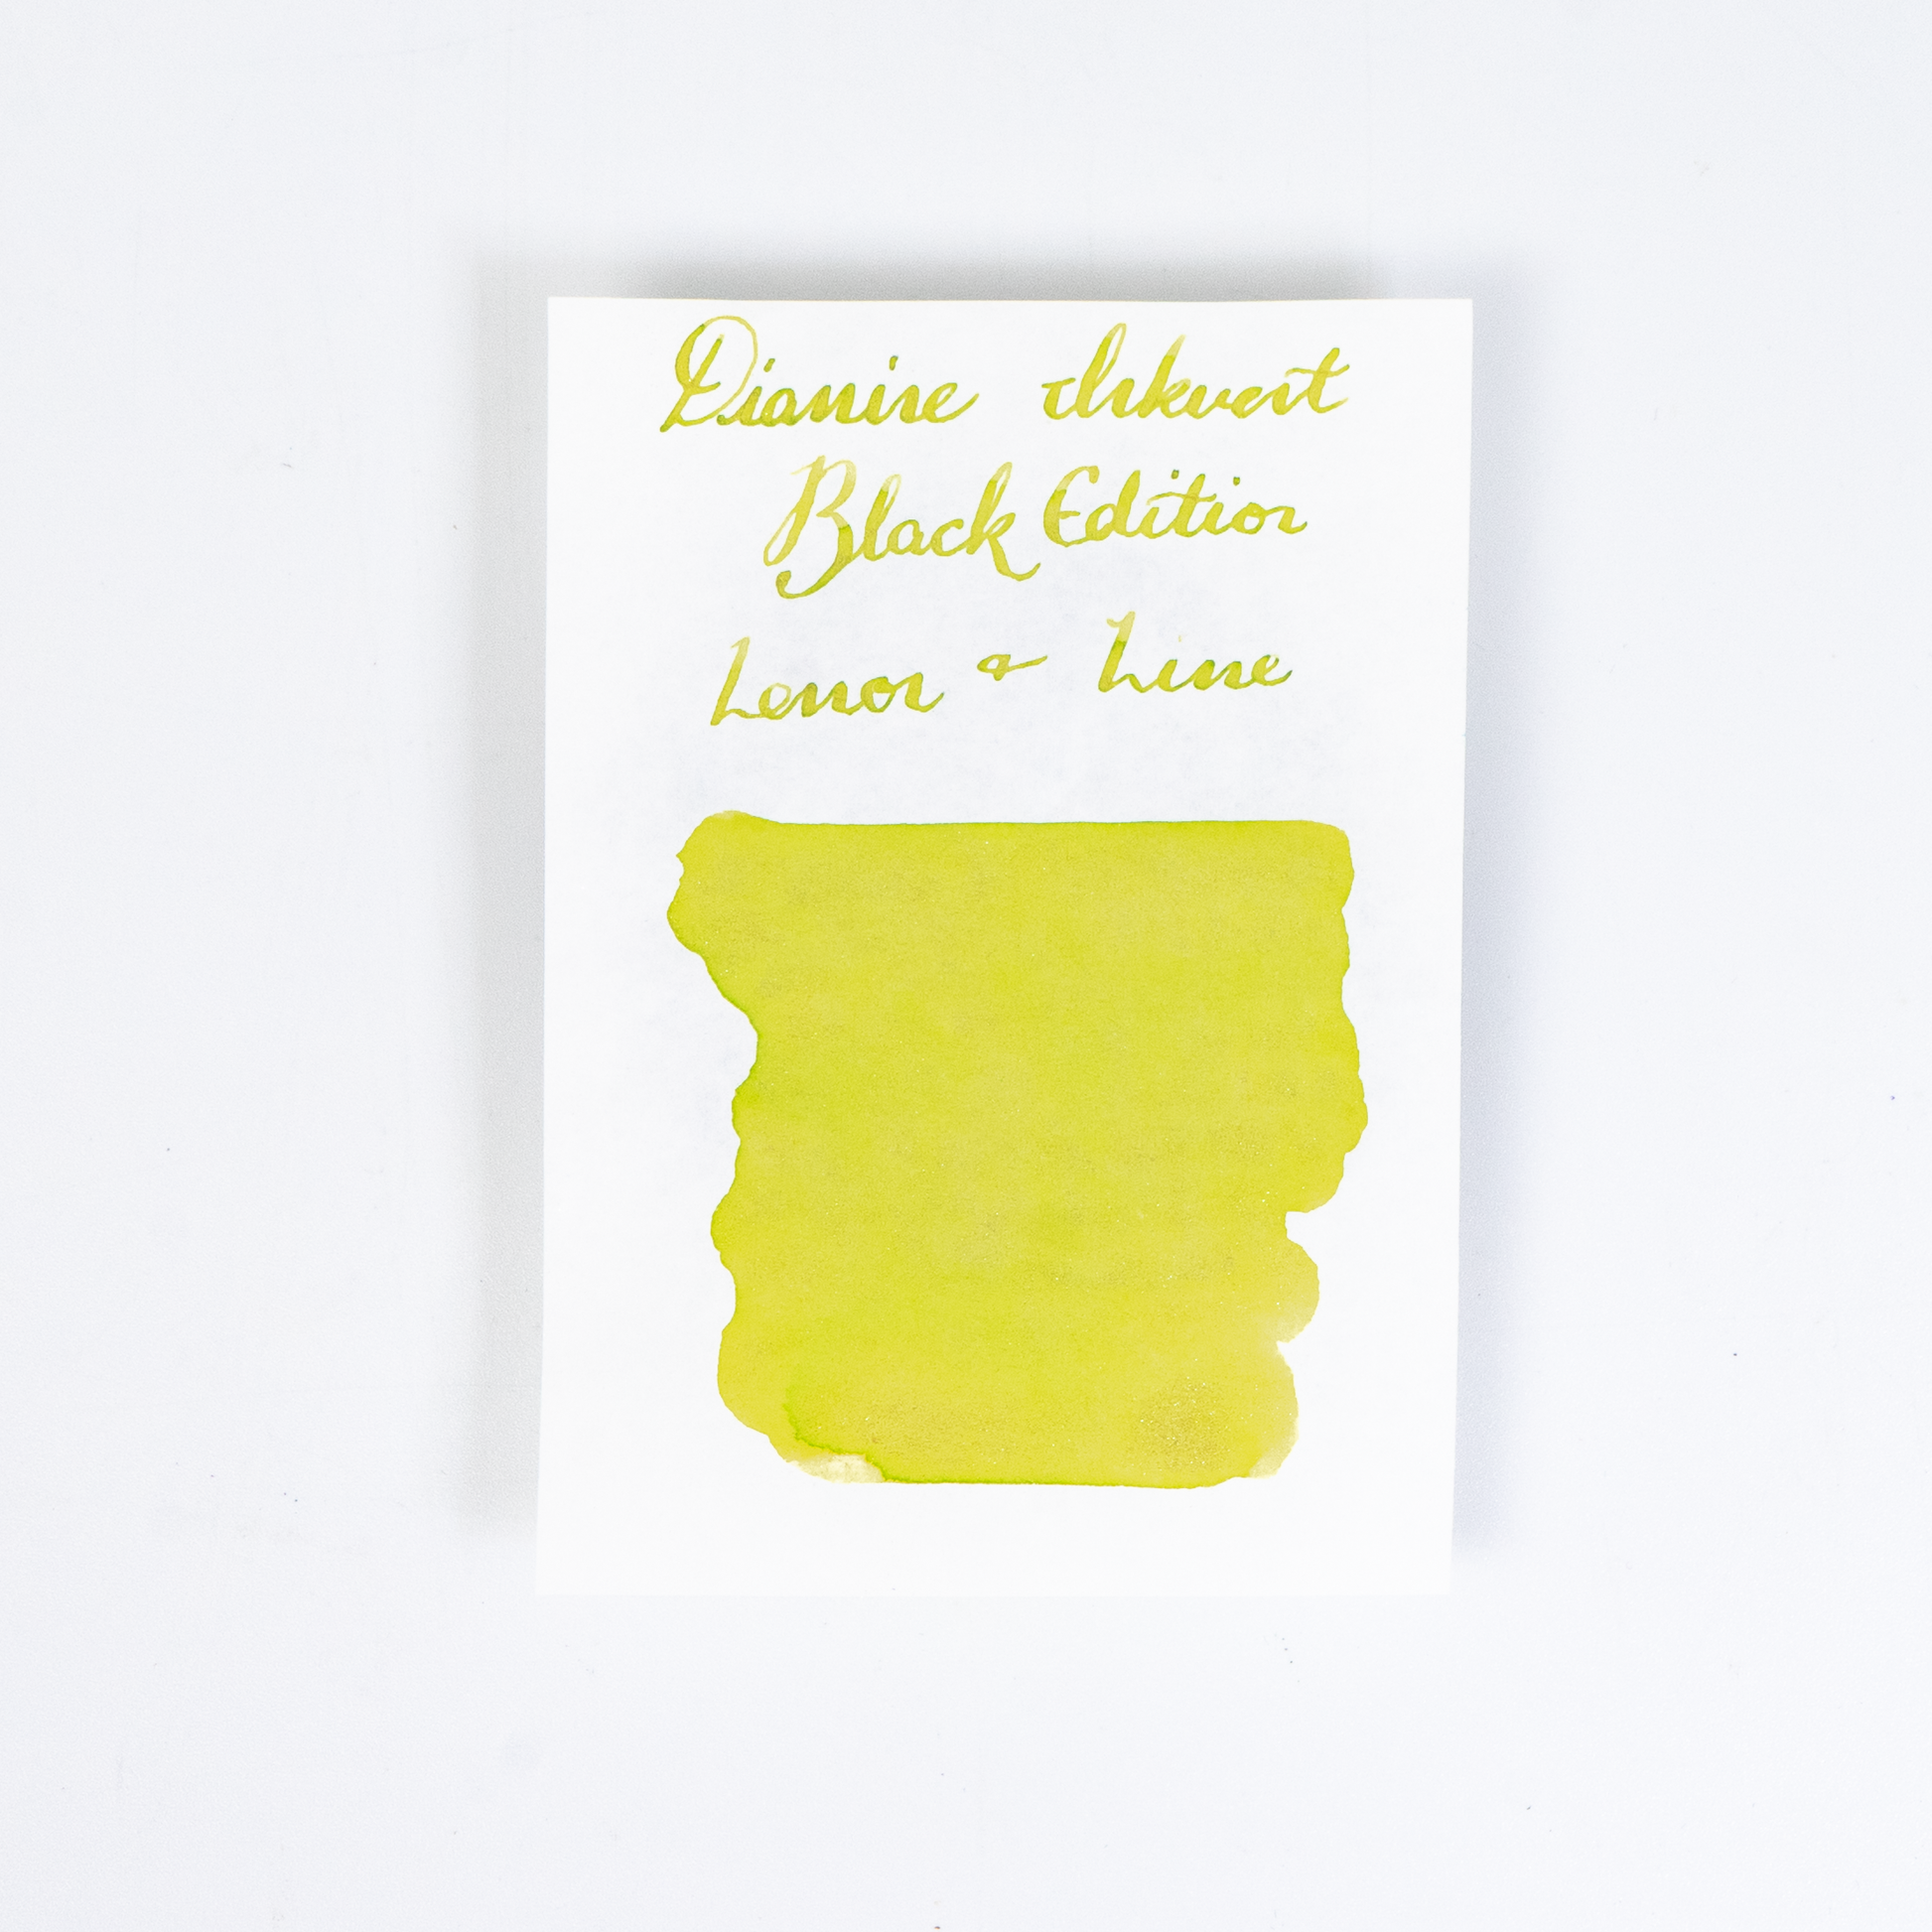 Diamine Inkvent
Black Edition
Lemon & Lime